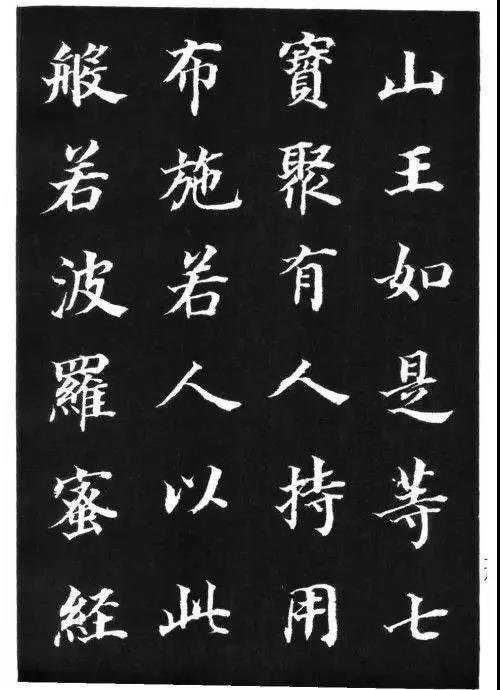 山王如是等七
寶聚有人持用
布施若人以此
般若波羅蜜経